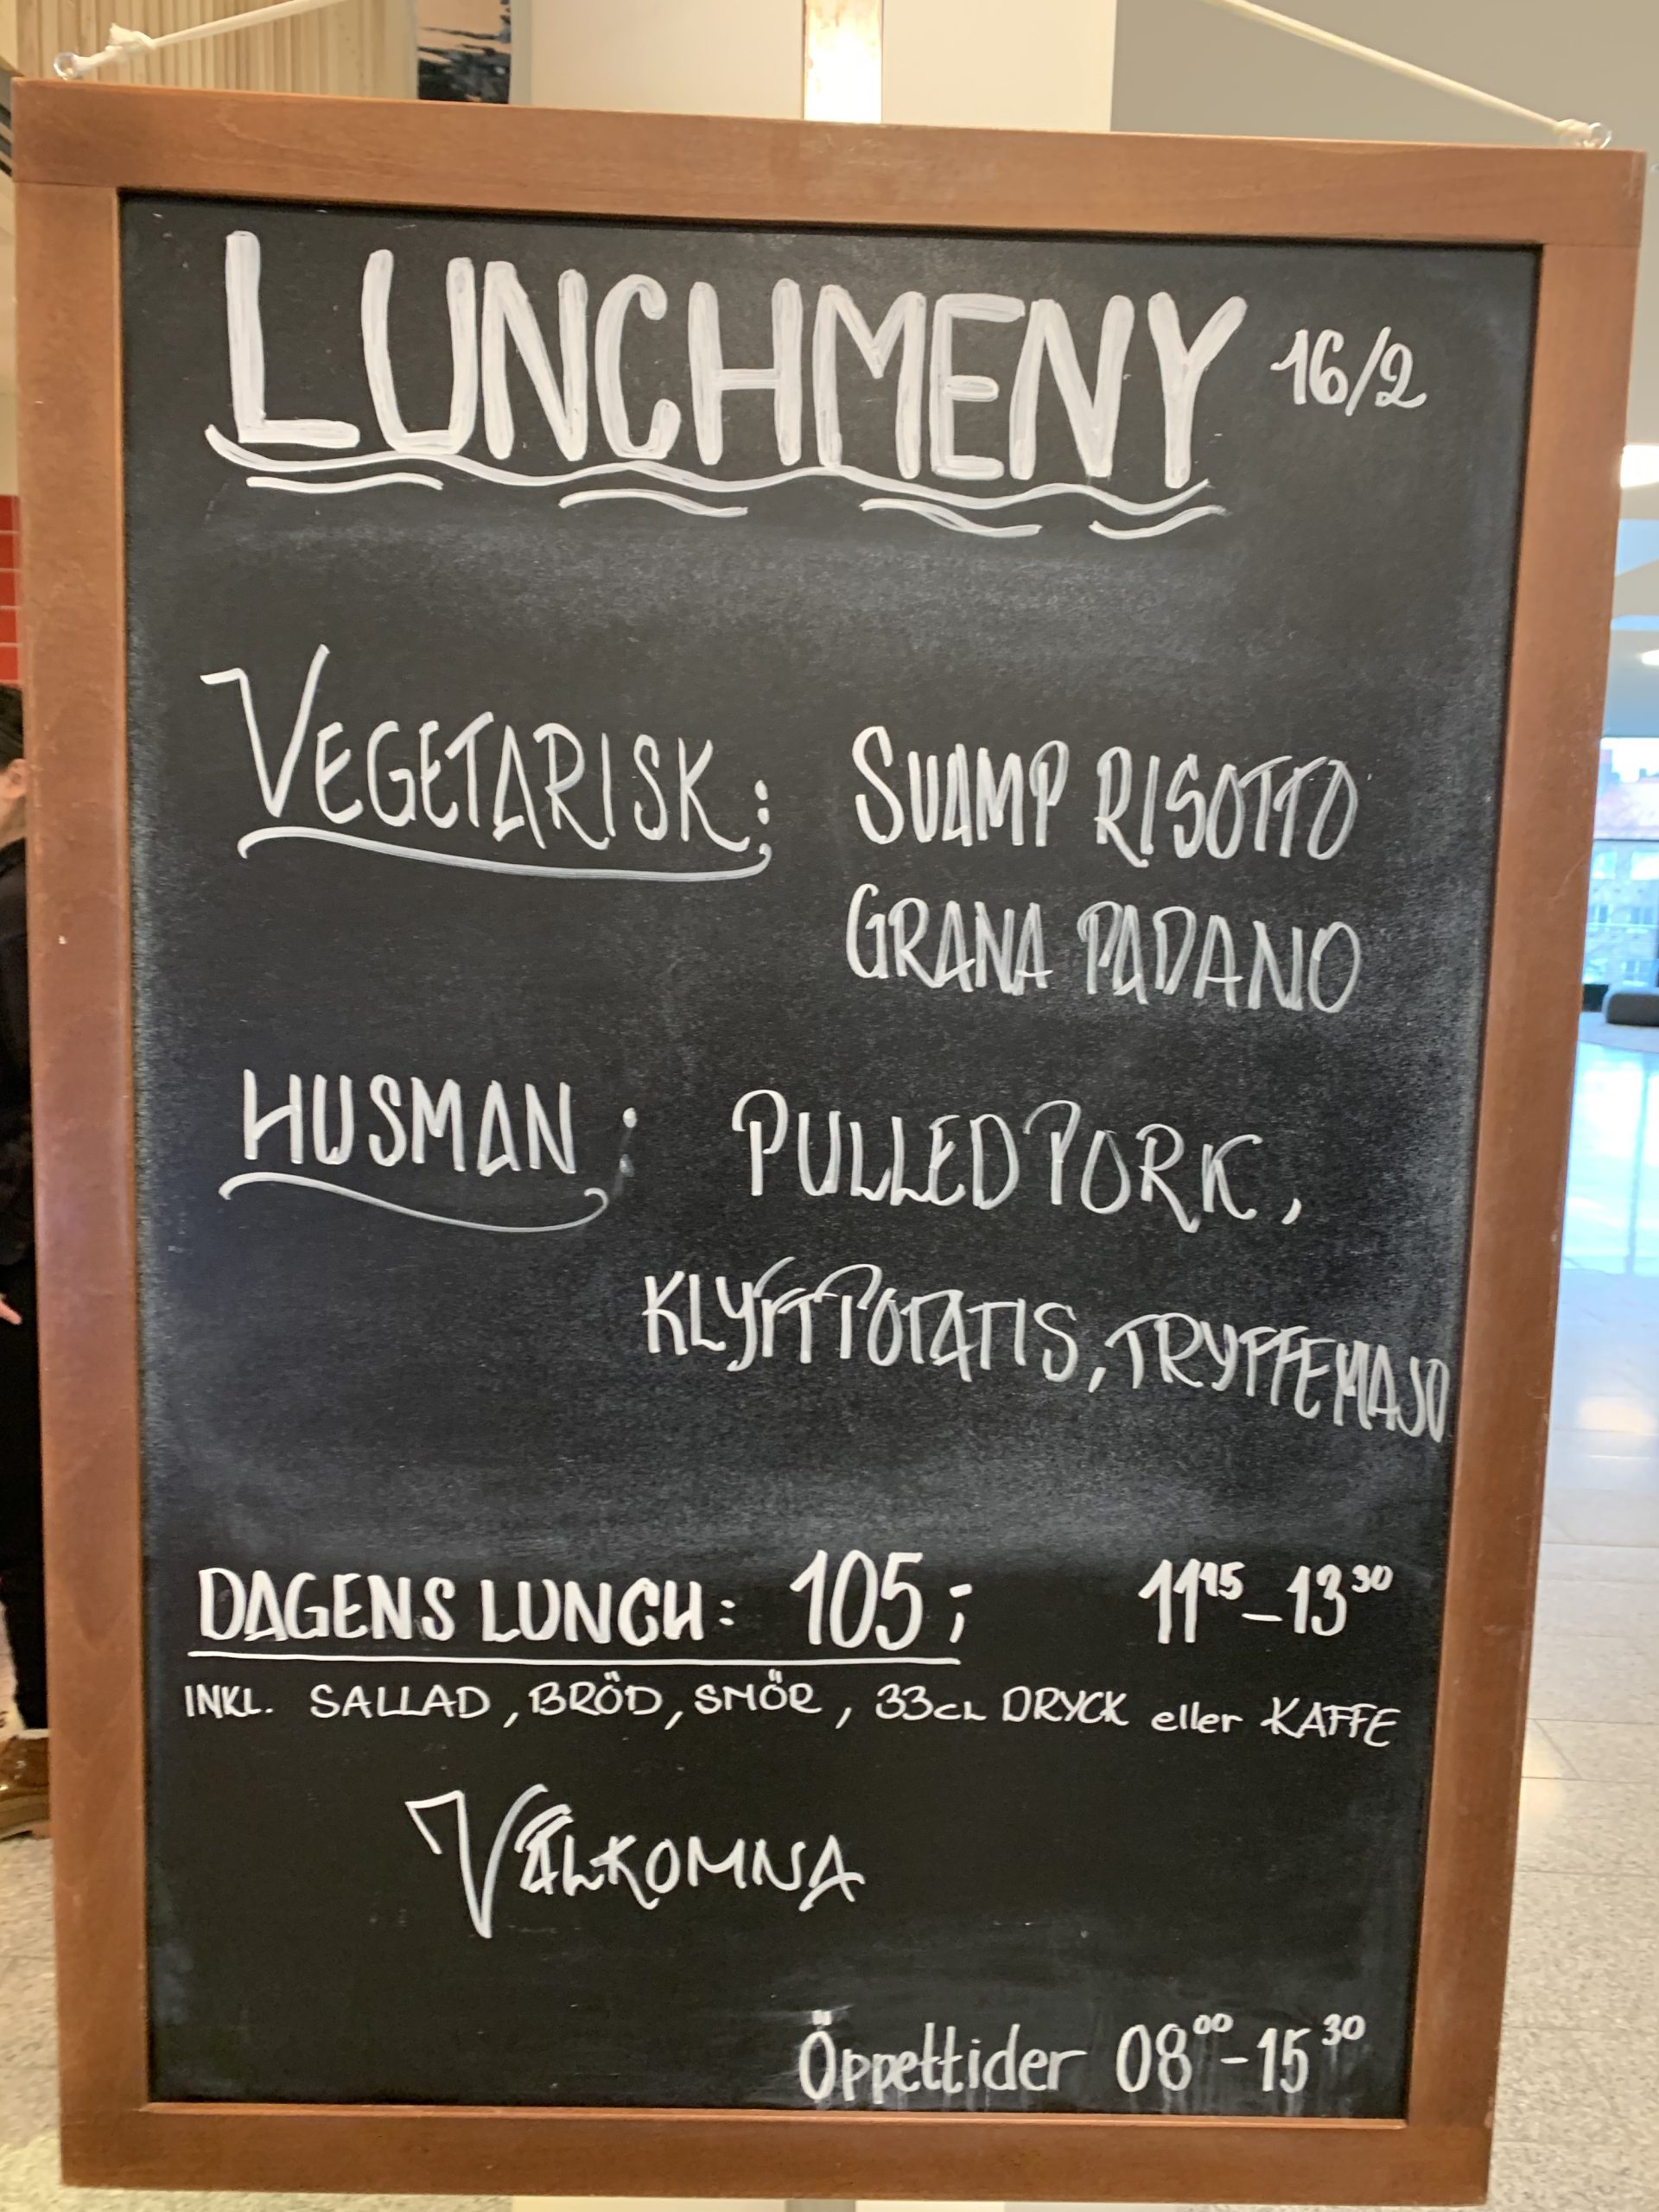 LUNCHMENY 16/2
VEGETARISK: SVAMP RISOTTO
GRANA PADANO
HUSMAN: PULLED PORK,
KLYFTPOTATIS, TRYFFEMAJO
DAGENS LUNCH: 105:- 11¹⁵-13³⁰
INKL. SALLAD, BRÖD, SMÖR, 33CL DRYCK eller KAFFE
VÄLKOMNA
Öppettider 08⁰⁰-15³⁰